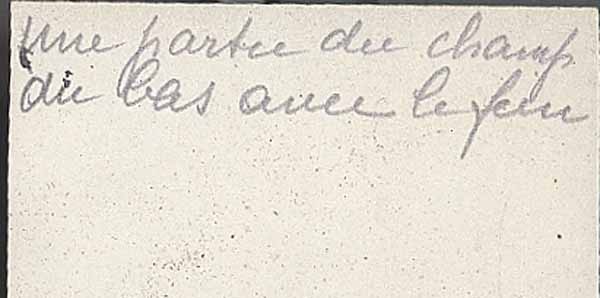 une partie du champ
du bas avec le feu